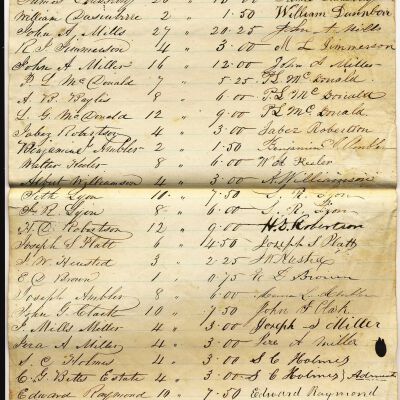 James 20 " 10 "
William Dusenbure 2 " 1.50 William Dusinbon
John A, Mills 27 " 20.25 John A Mills
R. J. Jimmerson 4 " 3.00 M L Jimmerson
John A Miller 16 " 12.00 John S Miller
P. L McDonald 7 5.25 P. L McDonald
A. B. Bayles 8 " 6.00 P L McDonald
L. G. McDonald 12 " 9.00 P L McDonald
Jabez Robertson 4 " 3.00 Jabez Robertson
Benjamine Ambler 2 " 1.50 Benjamin Ambler
Walter Keeler 8 " 6.00 W A Keeler
Albert Williamson 4 " 3.00 A. Williamson
Seth Lyon 10 " 7.50 Lyon
R. Lyon 8 " 6.00 R. Lyon
H. D. Robertson 12 " 9.00 H. S. Robertson
Joseph S Platt 6 " 4.50 Joseph S Platt
J. W. Heusted 3 " 2.25
E D Brown 1 " 0.75 E D Brown
Joseph Ambler 8 " 6.00 Ambler
John G. Clark 10 " 7.50 John A Clark
J. Mills Miller 4 " 3.00 Joseph S Miller
Ira A. Miller 4 " 3.00 Ira A Miller
S. C Holmes 4 " 3.00 S C Holmes
C. G. Betts Estate 4 " 3.00 S C Holmes } Administ
Edward Raymond 10 " 7.50 Edward Raymond